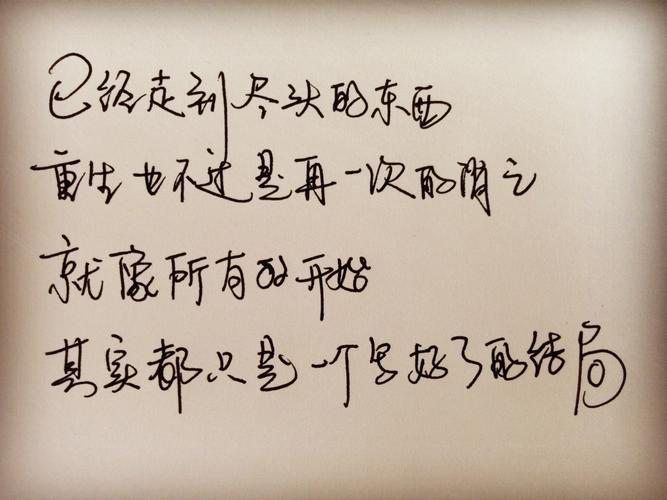 已经走到尽头的东西
重生也不过是再一次的消亡
就像所有的开始
其实都只是一个写好了的结局